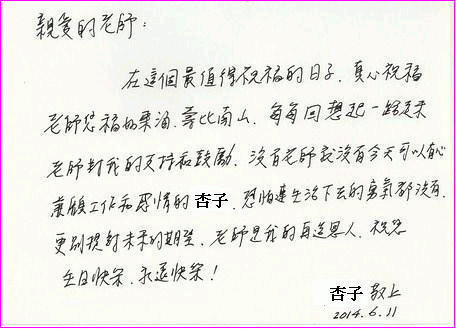 親愛的老師：
在這個最值得祝福的日子，真心祝福
老師您福如東海，壽比南山，每每回想起一路走來
老師對我的支持和鼓勵，沒有老師就沒有今天可以心
兼顧工作和感情的杏子，恐怕連生活下去的勇氣都沒有，
更別提對未來的期望，老師是我的再造恩人，祝您
生日快樂，永遠快樂！
杏子 敬上
2014.6.11